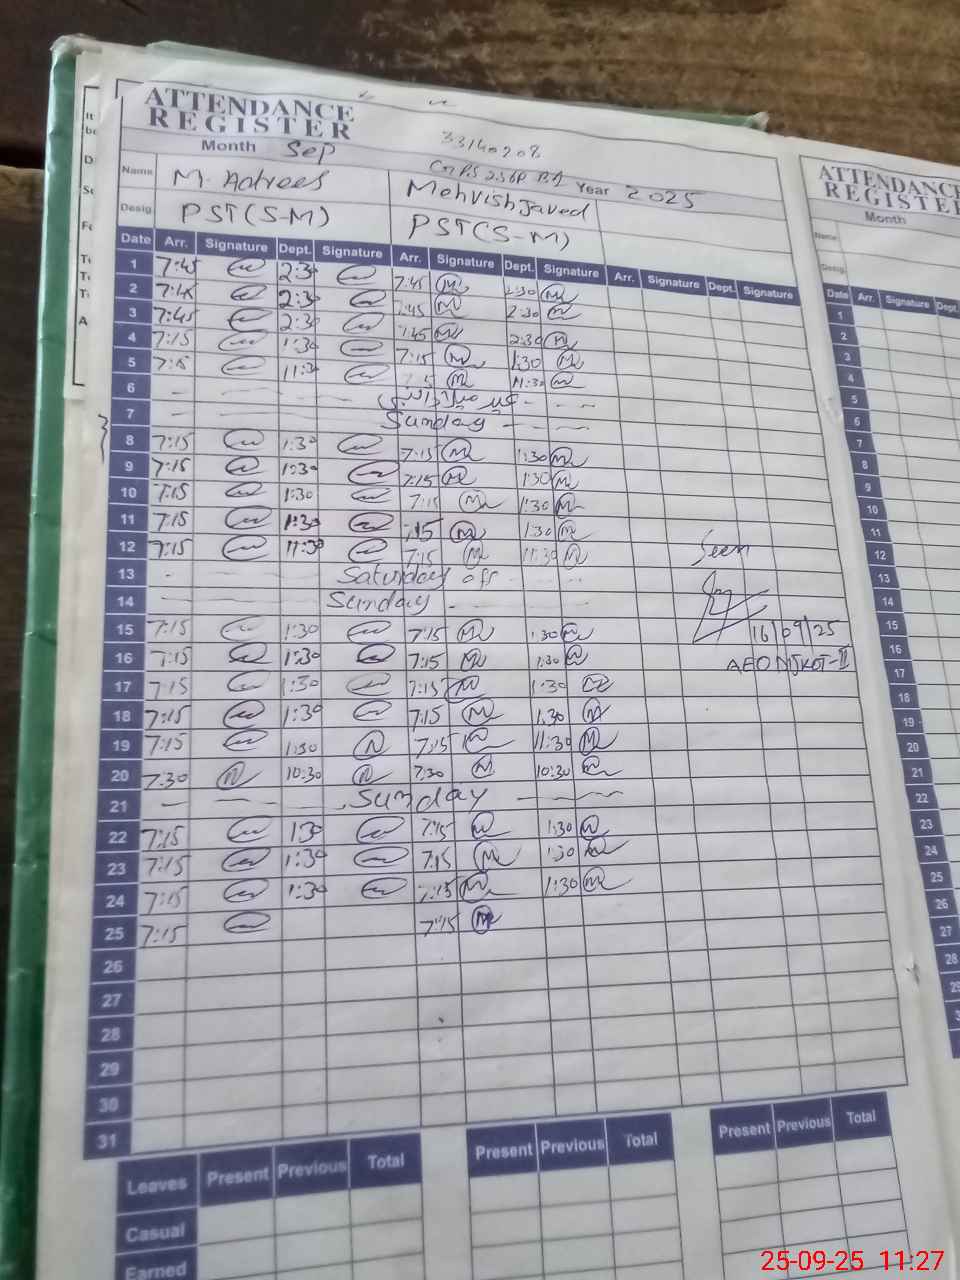 ATTENDANCE
REGISTER
Month Sep
33140208
Year 2025
Name M. Adrees Mehvish Javed
Desig. PST(S-M) PST(S-M)
Date Arr. Signature Dept. Signature Arr. Signature Dept. Signature Arr. Signature Dept. Signature
1 7:45 2:30 7:45 2:30
2 7:45 2:30 7:45 2:30
3 7:45 2:30 7:45 2:30
4 7:15 1:30 7:15 1:30
5 7:15 11:30 11:30
6
7 Sunday
8 7:15 1:30 7:15 1:30
9 7:15 1:30 7:15 1:30
10 7:15 1:30 7:15 1:30
11 7:15 1:30 7:15 1:30
12 7:15 11:30 7:15 11:30
Seen
13 Saturday off
14 Sunday
15 7:15 1:30 7:15 1:30
16/09/25
16 7:15 1:30 7:15 1:30
AEO
17 7:15 1:30 7:15 1:30
18 7:15 1:30 7:15 1:30
19 7:15 1:30 7:15 11:30
20 7:30 10:30 7:30 10:30
21 Sunday
22 7:15 1:30 7:15 1:30
23 7:15 1:30 7:15 1:30
24 7:15 1:30 7:15 1:30
25 7:15 7:15
26
27
28
29
30
31
Leaves Present Previous Total Present Previous Total Present Previous Total
Casual
Earned
ATTENDANCE
REGISTER
Month
Name
Desig.
Date Arr. Signature Dept.
1
2
3
4
5
6
7
8
9
10
11
12
13
14
15
16
17
18
19
20
21
22
23
24
25
26
27
28
25-09-25 11:27